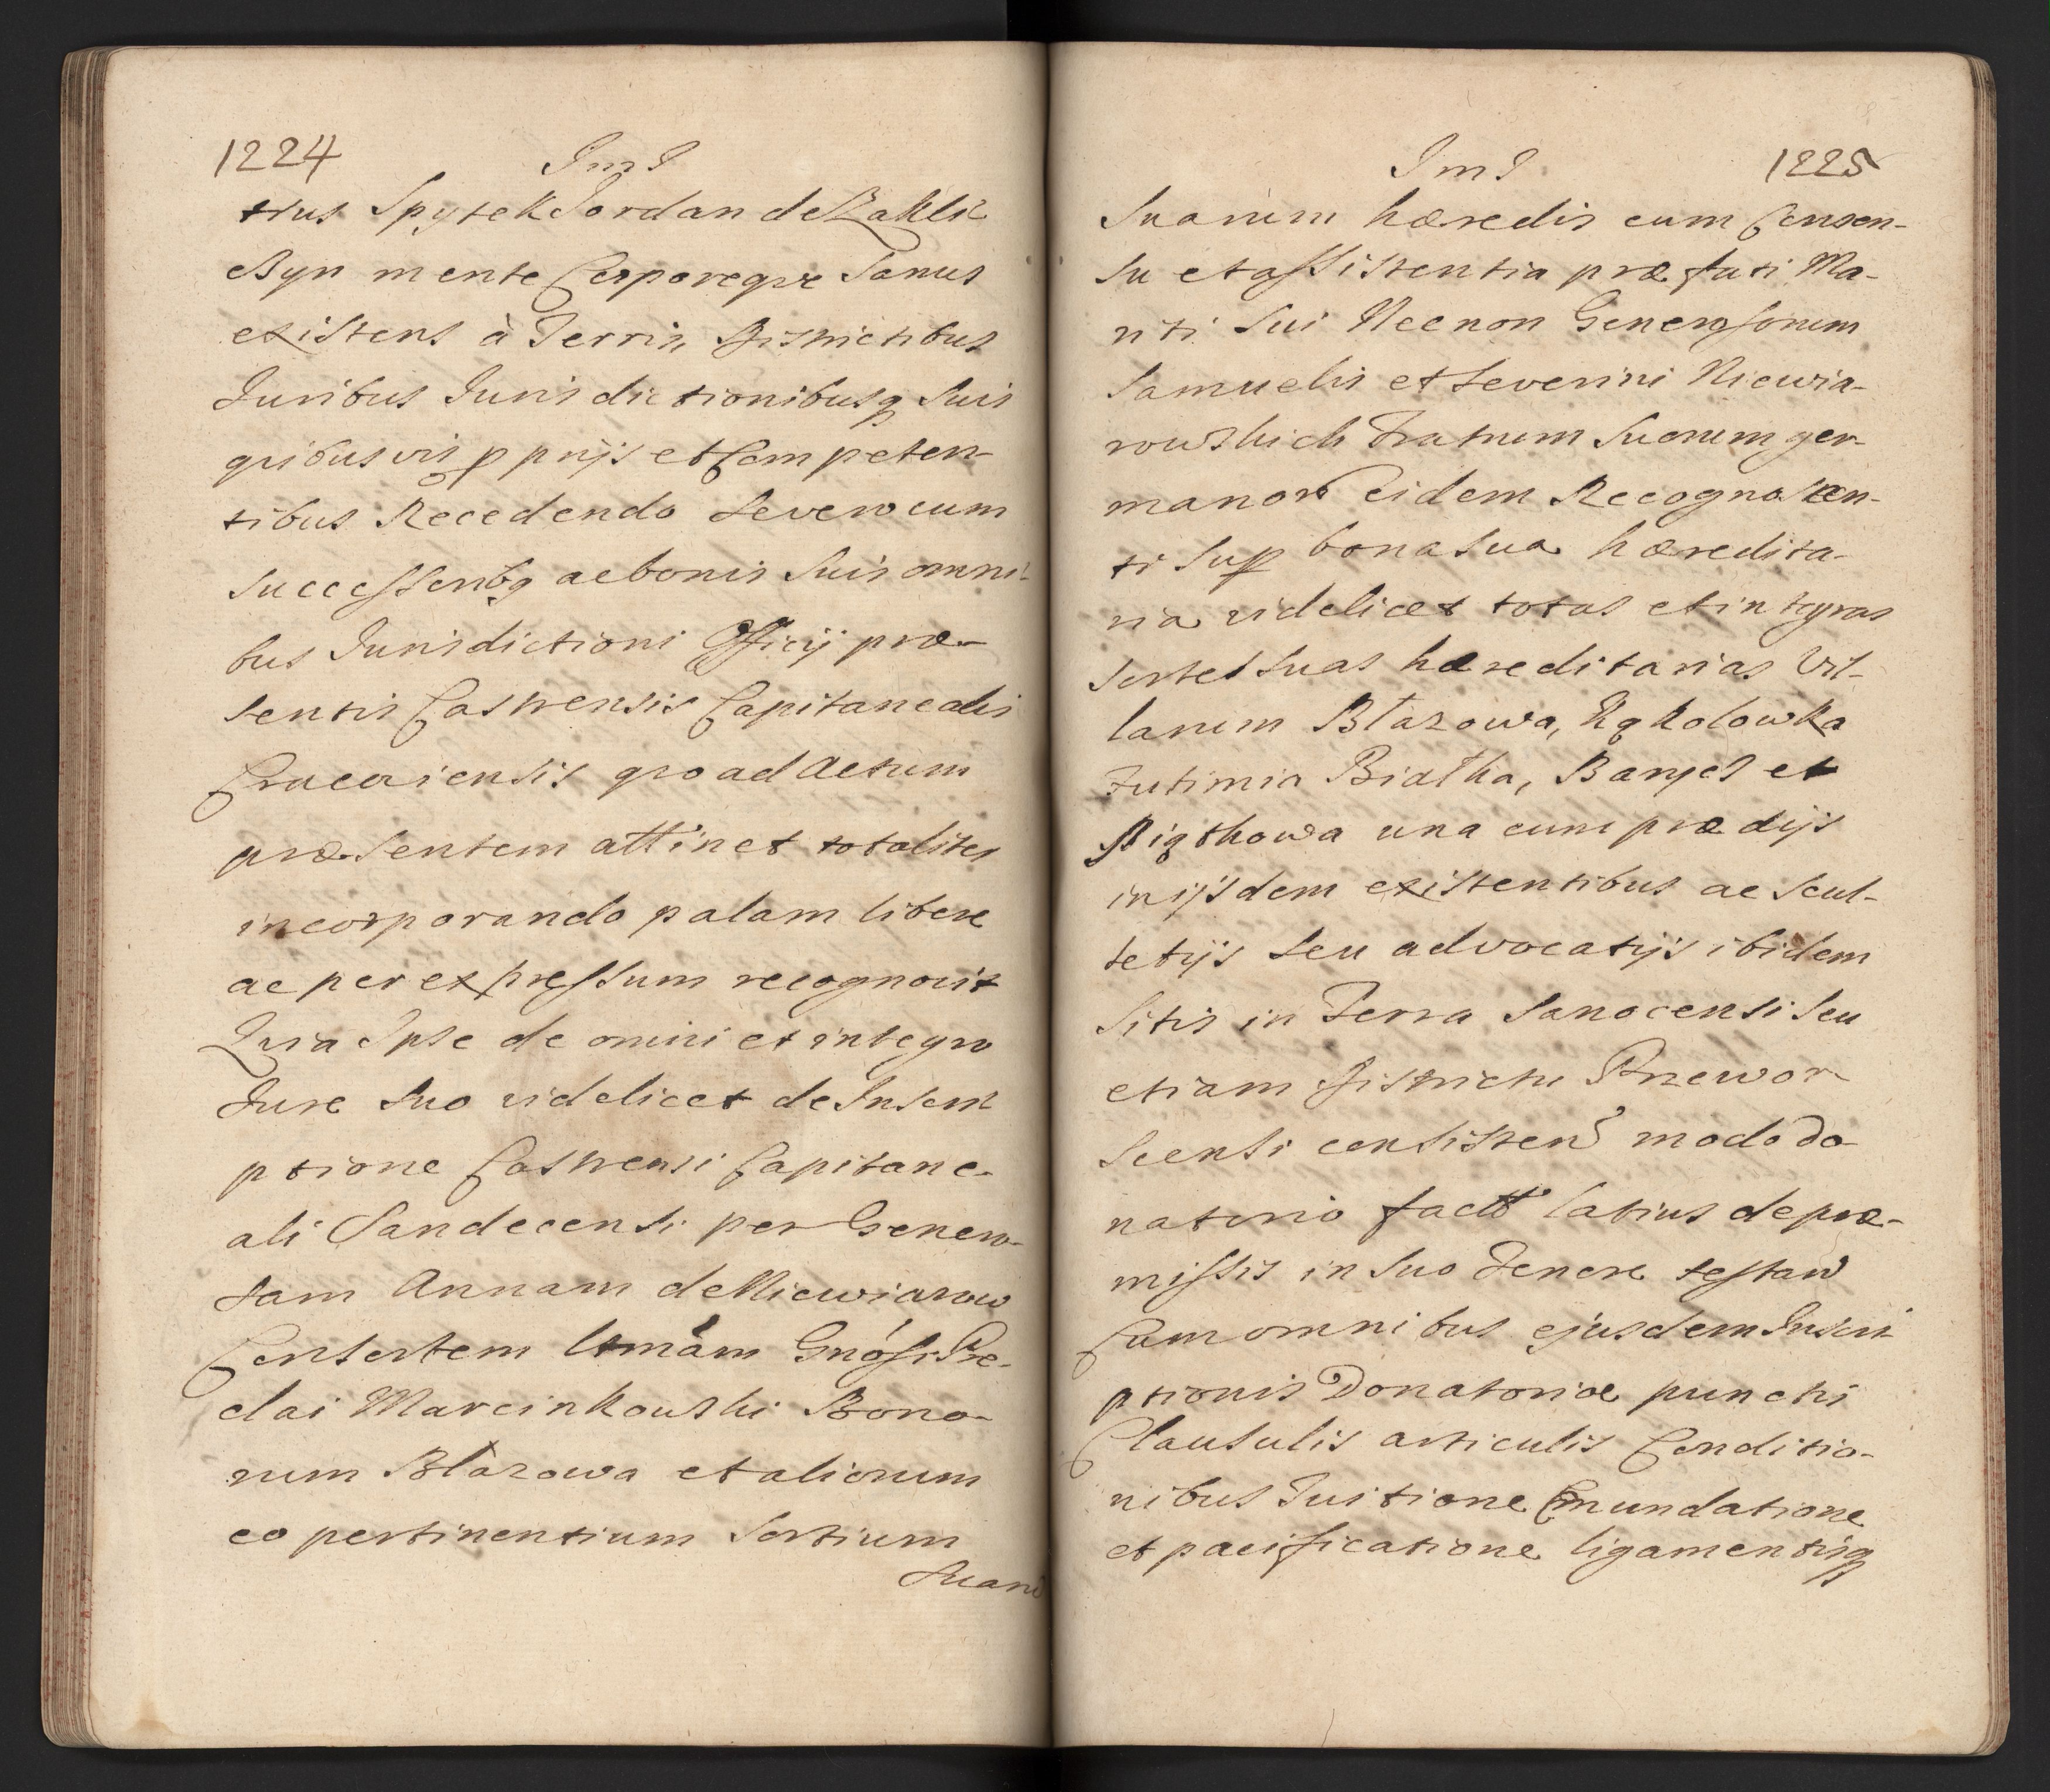 1224
trus Spytek Jordan de Zakli
czyn mente Corporeque Sanus
existens à Terris, Districtibus
Juribus Jurisdictionibusq Suis
quibusvis pprijs et Competen-
tibus Recedendo Severo cum
Successoribq ac bonis Suis omni-
bus Jurisdictioni Officij præ-
sentis Castrensis Capitanealis
Cracoviensis quo ad Actum
præsentem attinet totaliter
incorporando palam libere
ac per expressum recognovit
Quia Ipse de omni et integro
Jure Suo videlicet de Inscri
ptione Castrensi Capitane-
ali Sandecensi per Genero-
sam Annam de Niewiarow
Consortem ltmam Gnósi Pre-
clai Marcinkowski Bono-
rum Błazowa et aliorum
eo pertinentium Sortium
Suarū
1225
Suarum hæredis cum Consen-
su et assistentia præfati Ma-
riti Sui Necnon Generosorum
Samuelis et Severini Niewia-
rowskich Fratrum Suorum ger-
manorū Eidem Recognoscen-
ti Sup bona Sua hæredita-
ria videlicet totas et integras
Sortes Suas hæreditarias Vil-
larum Błazowa, Kąkolowka
Futimia Białka, Barycz et
Piątkowa una cum prædijs
in ijsdem existentibus ac Scul-
tetijs Seu advocatijs ibidem
Sitis in Terra Sanocensi Seu
etiam Districtu Przewor-
scensi consisten modo Do-
natorio factt latius de præ-
missis in Suo Tenore testan
Cum omnibus ejusdem Inscri
ptionis Donatoriæ punctis
Clausulis articulis Conditio-
nibus Tuitione Emundatione
et pacificatione ligamentisq